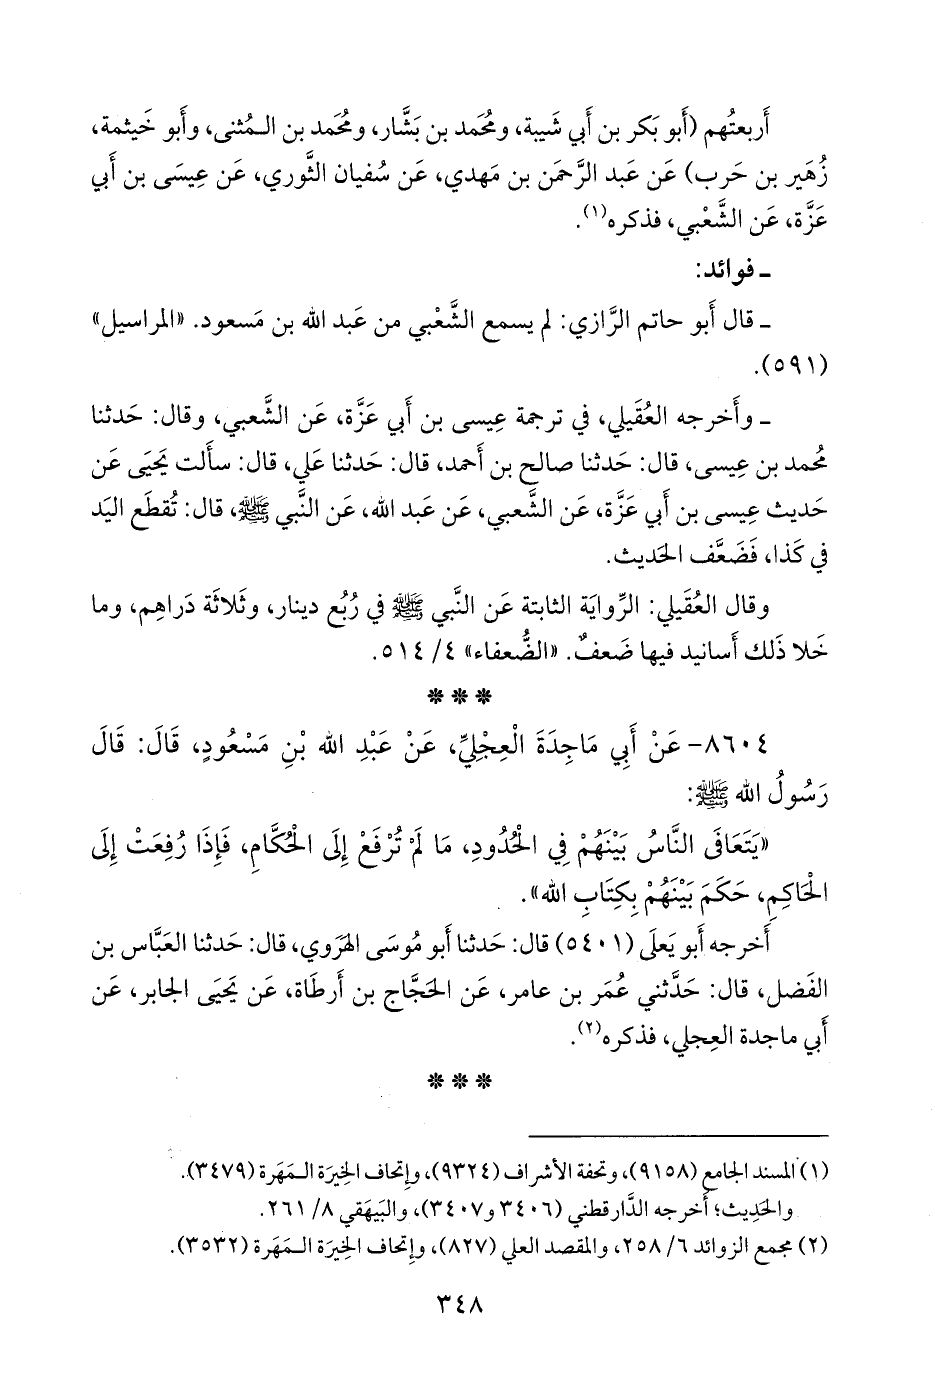 أَربعتُهم (أَبو بَكر بن أَبي شَيبة، ومُحَمد بن بَشَّار، ومُحَمد بن الـمُثنى، وأَبو خَيثمة،
زُهَير بن حَرب) عَن عبد الرَّحمَن بن مَهدي، عَن سُفيان الثَّوري، عَن عِيسَى بن أَبي
عَزَّة، عَن الشَّعبي، فذكره(١).
ـ فوائد:
ـ قال أَبو حاتم الرَّازي: لم يسمع الشَّعْبي من عَبد الله بن مَسعود. «المراسيل»
(٥٩١).
ـ وأَخرجه العُقَيلي، في ترجمة عِيسى بن أَبي عَزَّة، عَن الشَّعبي، وقال: حَدثنا
مُحمد بن عِيسى، قال: حَدثنا صالح بن أَحمد، قال: حَدثنا علي، قال: سأَلت يَحيَى عَن
حَديث عِيسى بن أَبي عَزَّة، عَن الشَّعبي، عَن عَبد الله، عَن النَّبي ﷺ، قال: تُقطَع اليَد
في كَذا، فَضَعَّف الحَديث.
وقال العُقيلي: الرِّوايَة الثابتة عَن النَّبي ﷺ في رُبُع دينار، وثَلاثَة دَراهِم، وما
خَلا ذَلك أَسانيد فيها ضَعفٌ. «الضُّعفاء» ٤/ ٥١٤.
***
٨٦٠٤- عَنْ أَبِي مَاجِدَةَ الْعِجْلِيِّ، عَنْ عَبْدِ الله بْنِ مَسْعُودٍ، قَالَ: قَالَ
رَسُولُ الله ﷺ:
«يَتَعَافَى النَّاسُ بَيْنَهُمْ فِي الْحُدُودِ، مَا لَمْ تُرْفَعْ إِلَى الْحُكَّامِ، فَإِذَا رُفِعَتْ إِلَى
الْحَاكِمِ، حَكَمَ بَيْنَهُمْ بِكِتَابِ الله».
أَخرجه أَبو يَعلَى (٥٤٠١) قال: حَدثنا أَبو مُوسَى الهَرَوي، قال: حَدثنا العَبَّاس بن
الفَضل، قال: حَدَّثني عُمَر بن عامر، عَن الحَجَّاج بن أَرطَاة، عَن يَحيَى الجابر، عَن
أَبي ماجدة العِجلي، فذكره(٢).
***
(١) المسند الجامع (٩١٥٨)، وتحفة الأشراف (٩٣٢٤)، وإتحاف الخِيرَة الـمَهَرة (٣٤٧٩).
والحَدِيث؛ أَخرجه الدَّارقطني (٣٤٠٦ و٣٤٠٧)، والبَيهَقي ٨/ ٢٦١.
(٢) مجمع الزوائد ٦/ ٢٥٨، والمقصد العلي (٨٢٧)، وإتحاف الخِيرَة الـمَهَرة (٣٥٣٢).
٣٤٨